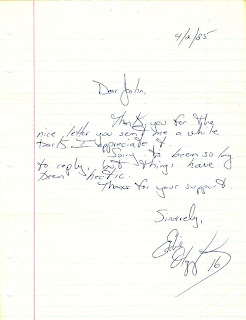 4/2/85
Dear John,
Thank you for the
nice letter you sent me a while
back. I appreciate it.
Sorry to been so long
to reply, but things have
been hectic.
Thanks for your support.
Sincerely,
Eddie
16